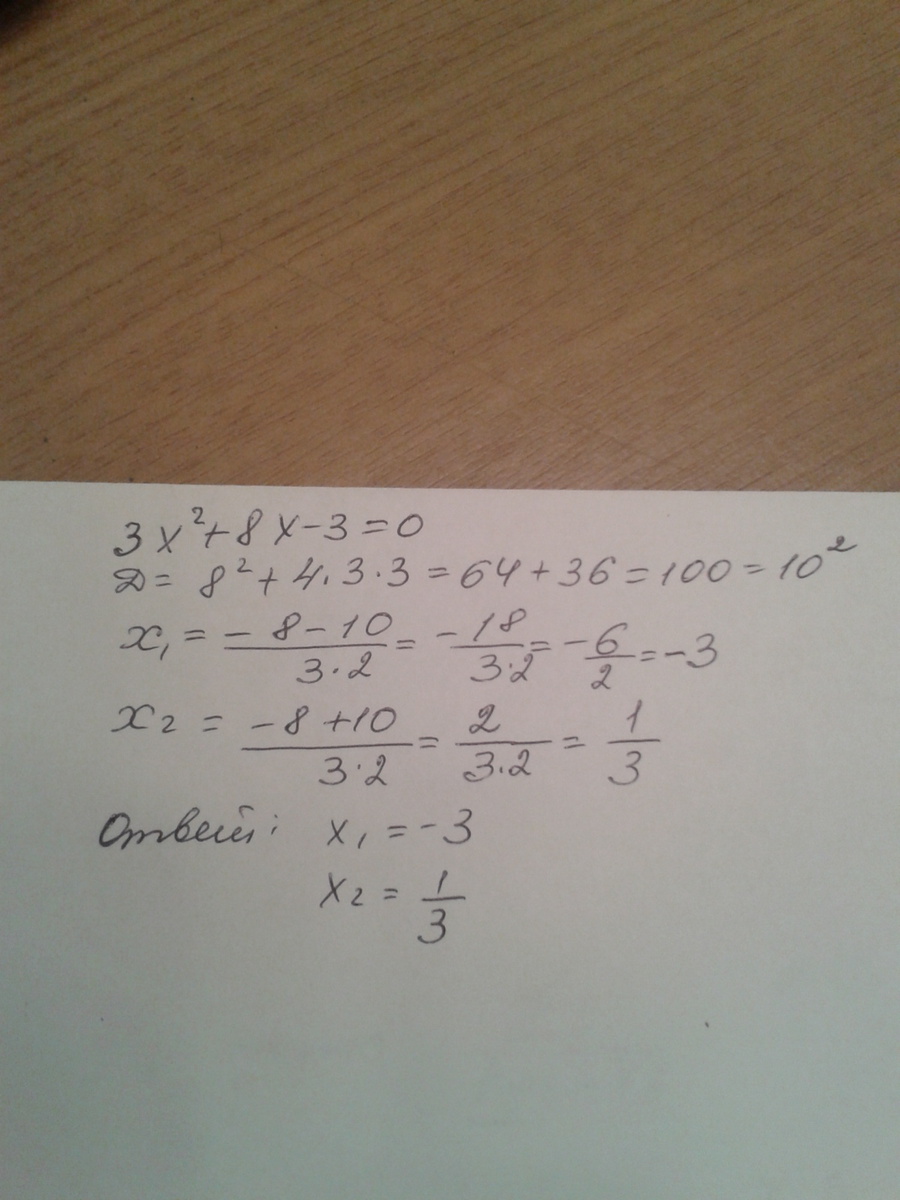 3x²+8x-3=0
D= 8²+4.3·3=64+36=100=10²
x₁ = (-8-10)/(3·2) = -18/(3·2) = -6/2 = -3
x₂ = (-8+10)/(3·2) = 2/(3·2) = 1/3
Ответ: x₁ = -3
x₂ = 1/3